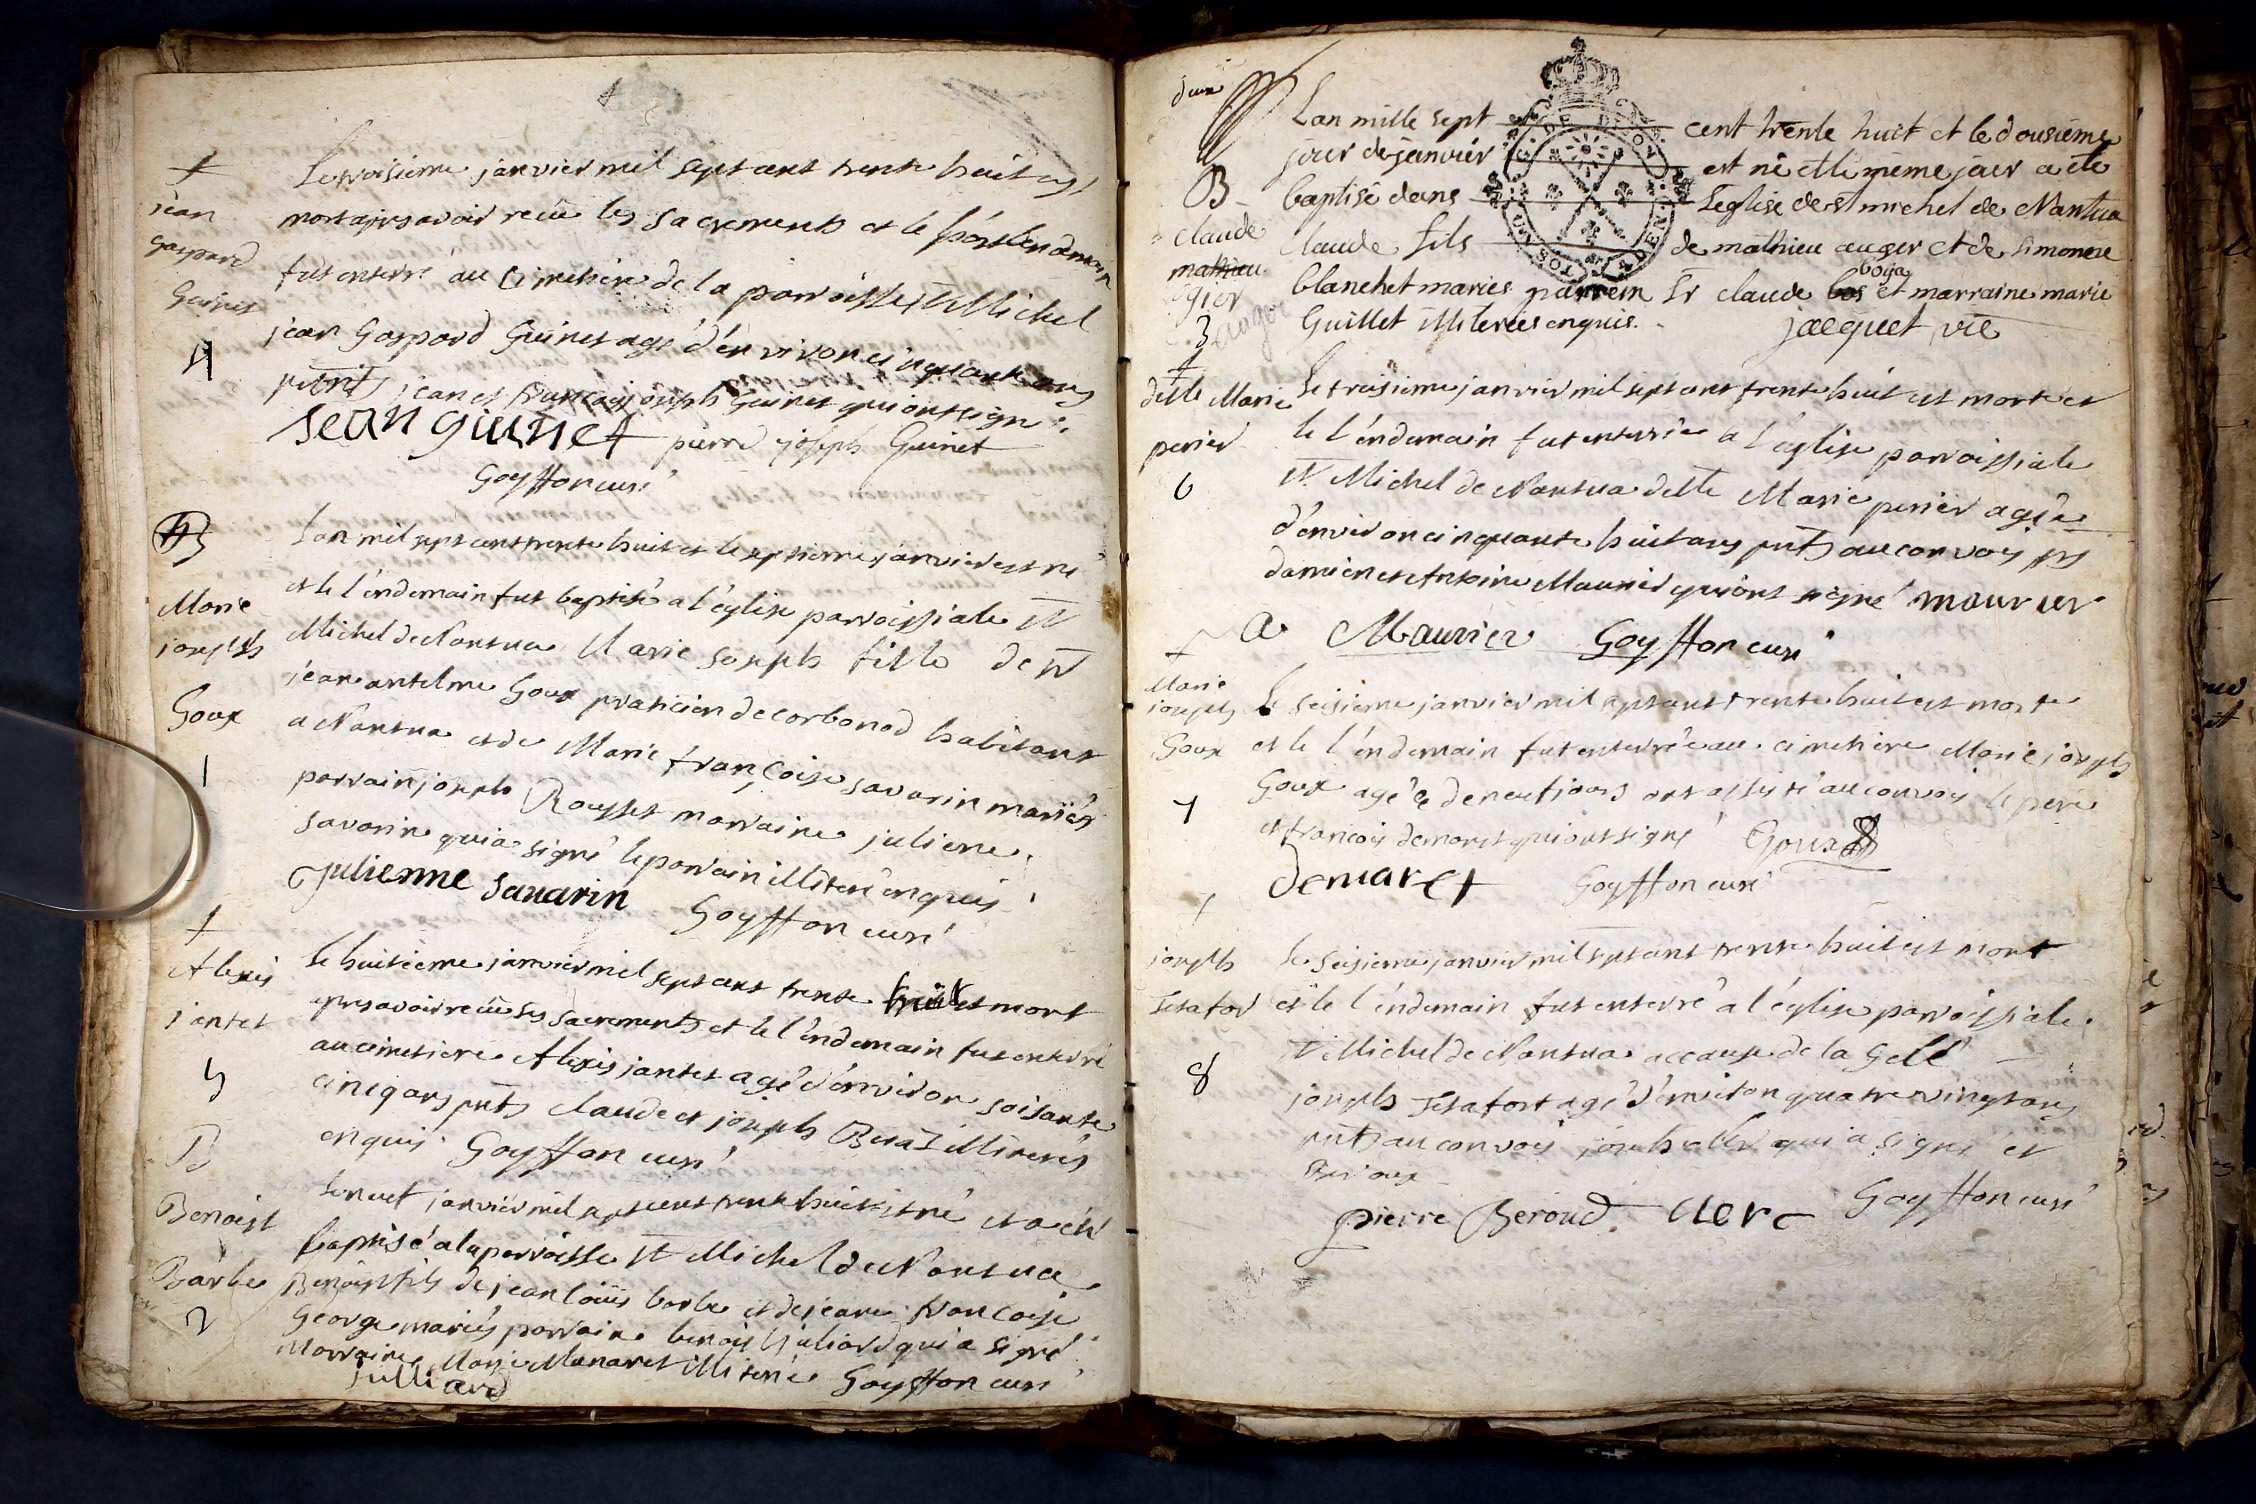 †
jean
gaspard
Guinet
4
Le troisieme janvier mil sept cent trente huit est
mort apres avoir receu les sacrements et le lendemain
fut enterré au cimetiere de la parroisse st Michel
jean Gaspard Guinet agé d'environ cinquante ans
pnts jean et françois joseph Guinet qui ont signé
jean guinet pierre joseph Guinet
Goyffon curé
B
Marie
joseph
Goux
1
Lan mil sept cent trente huit et le septieme janvier est né
et le l'endemain fut baptisé a l'église parroissiale st
Michel de Nantua Marie joseph fille de sr
jean antelme Goux praticien de corbonod habitant
a Nantua et de Marie françoise savarin mariés
parrain joseph Rousset marraine juliene
savarin qui a signé le parrain illiteré enquis
julienne savarin Goyffon curé
†
Alexis
jantet
5
le huitieme janvier mil sept cent trente huit est mort
apres avoir receu ses sacrements et le l'endemain fut enterré
au cimetiere Alexis jantet agé d'environ soisante
cinq ans pnts claude et joseph illiterés
enquis Goyffon curé
B
Benoist
Barbe
2
Le neuf janvier mil sept cent trente huit est né et a été
baptisé a la parroisse st Michel de Nantua
Benoist fils de jean loüis barbe et de jeane françoise
George mariés parrain benoist juliard qui a signé
marraine Marie Manaret illiterée Goyffon curé
Julliard
deux
B
claude
mathieu
ogier
auger
3
Lan mille sept cent trente huit et le dousieme
jour de janvier est né et le meme jour a été
baptisé dans l'eglise de st michel de Nantua
claude fils de mathieu auger et de simonne
blanchet mariés parrein sr claude bos boija et marraine marie
Guillet illiterées enquis. jacquet vic
†
delle Marie
perier
6
Le treisieme janvier mil sept cent trente huit est morte et
le l'endemain fut enterrée a l'eglise parroissiale
st Michel de Nantua delle Marie perier agée
d'environ cinquante huit ans pnts au convoy jrs
damien et Antoine Maurier qui ont signé maurier
a Maurier Goyffon curé
†
Marie
joseph
Goux
7
Le seisieme janvier mil sept cent trente huit est morte
et le l'endemain fut enterrée au cimetiere Marie joseph
Goux agée de neuf jours ont assisté au convoy le pere
et françois demaret qui ont signé Goux
demaret Goyffon curé
†
joseph
Tetafort
8
le seisieme janvier mil sept cent trente huit est mort
et le l'endemain fut enterré a l'église parroissiale
st Michel de Nantua a cause de la gelé
joseph Tetafort agé d'environ quatre vingt ans
pnts au convoy joseph clerc qui a signé et
pierre Beroud. clerc Goyffon curé